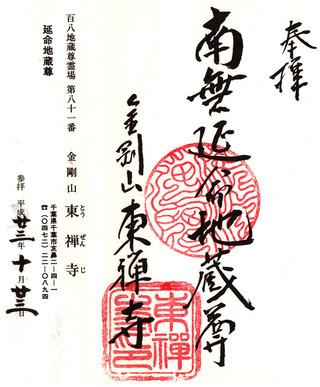 奉拝
南無延命地蔵尊
金剛山東禅寺
百八地蔵尊霊場 第八十一番 金剛山 東禅寺
とうぜんじ
延命地蔵尊
参拝 平成廿二年十月廿三日